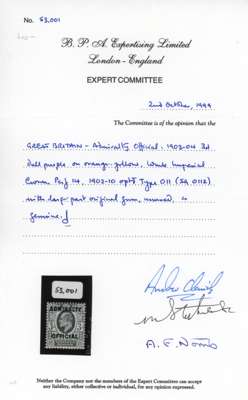 No. 53,001
B. P. A. Expertising Limited
London - England
EXPERT COMMITTEE
2nd October, 1999
The Committee is of the opinion that the
GREAT BRITAIN - Admiralty Official - 1902-04 3d
dull purple on orange-yellow, wmk Imperial
Crown Perf 14, 1903 optd Type O11 (SG O112)
with large part original gum, mounted, is
genuine.
53,001
ADMIRALTY
OFFICIAL
A. F. Norris
Neither the Company nor the members of the Expert Committee can accept
any liability, either collective or individual, for any opinion expressed.